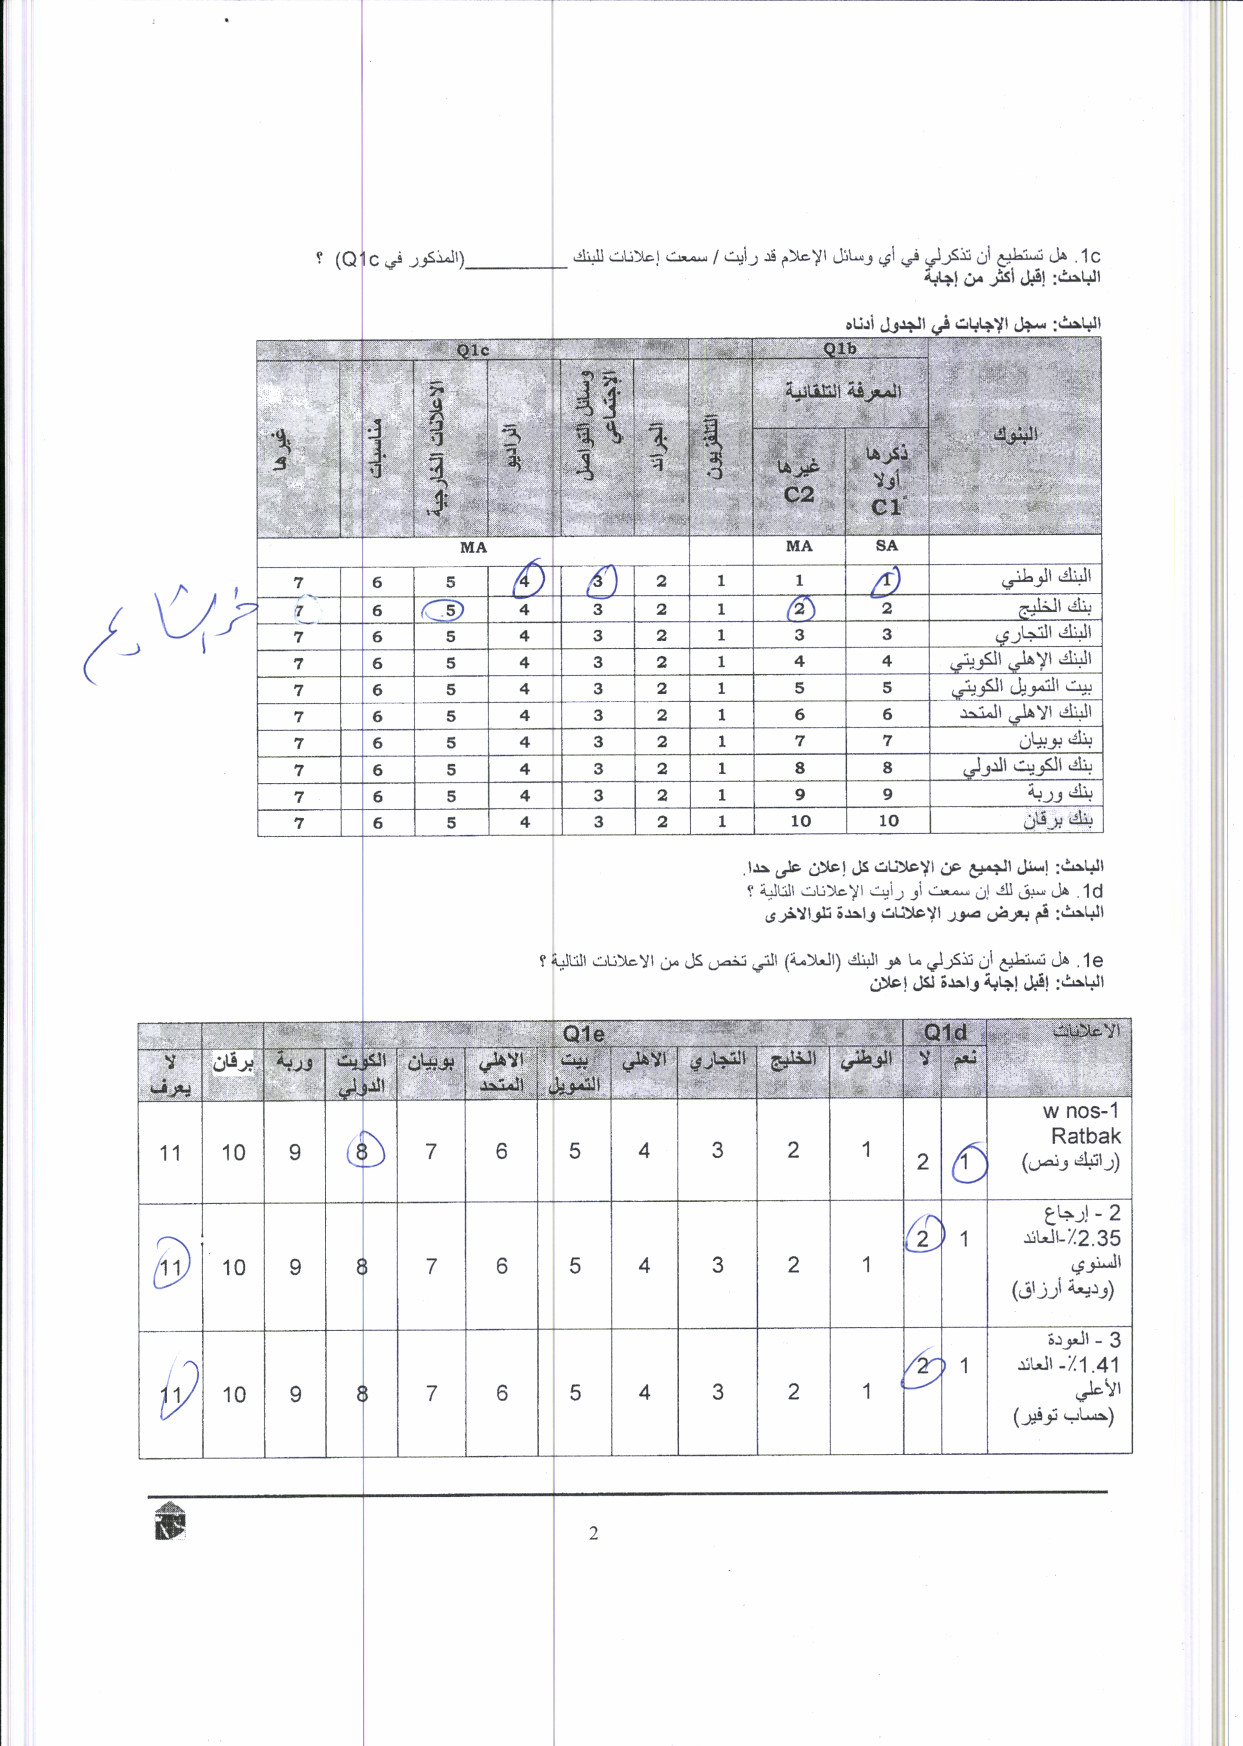 1c. هل تستطيع أن تذكرلي في أي وسائل الإعلام قد رأيت / سمعت إعلانات للبنك __________(المذكور في Q1c) ؟
الباحث: إقبل أكثر من إجابة
الباحث: سجل الإجابات في الجدول أدناه
Q1b Q1c
البنوك المعرفة التلقائية التلفزيون الجرائد وسائل التواصل الإجتماعي الراديو الاعلانات الخارجية مناسبات غيرها
ذكرها أولا C1 غيرها C2
SA MA MA
البنك الوطني 1 1 1 2 3 4 5 6 7
بنك الخليج 2 2 1 2 3 4 5 6 7
البنك التجاري 3 3 1 2 3 4 5 6 7
البنك الإهلي الكويتي 4 4 1 2 3 4 5 6 7
بيت التمويل الكويتي 5 5 1 2 3 4 5 6 7
البنك الاهلي المتحد 6 6 1 2 3 4 5 6 7
بنك بوبيان 7 7 1 2 3 4 5 6 7
بنك الكويت الدولي 8 8 1 2 3 4 5 6 7
بنك وربة 9 9 1 2 3 4 5 6 7
بنك برقان 10 10 1 2 3 4 5 6 7
الباحث: إسئل الجميع عن الإعلانات كل إعلان على حدا.
1d. هل سبق لك إن سمعت أو رأيت الإعلانات التالية ؟
الباحث: قم بعرض صور الإعلانات واحدة تلوالاخرى
1e. هل تستطيع أن تذكرلي ما هو البنك (العلامة) التي تخص كل من الاعلانات التالية ؟
الباحث: إقبل إجابة واحدة لكل إعلان
الاعلانات Q1d Q1e
نعم لا الوطني الخليج التجاري الاهلي بيت التمويل الاهلي المتحد بوبيان الكويت الدولي وربة برقان لا يعرف
w nos-1
Ratbak
(راتبك ونص) 1 2 1 2 3 4 5 6 7 8 9 10 11
2 - إرجاع
2.35٪-العائد
السنوي
(وديعة أرزاق) 1 2 1 2 3 4 5 6 7 8 9 10 11
3 - العودة
1.41٪- العائد
الأعلي
(حساب توفير) 1 2 1 2 3 4 5 6 7 8 9 10 11
2